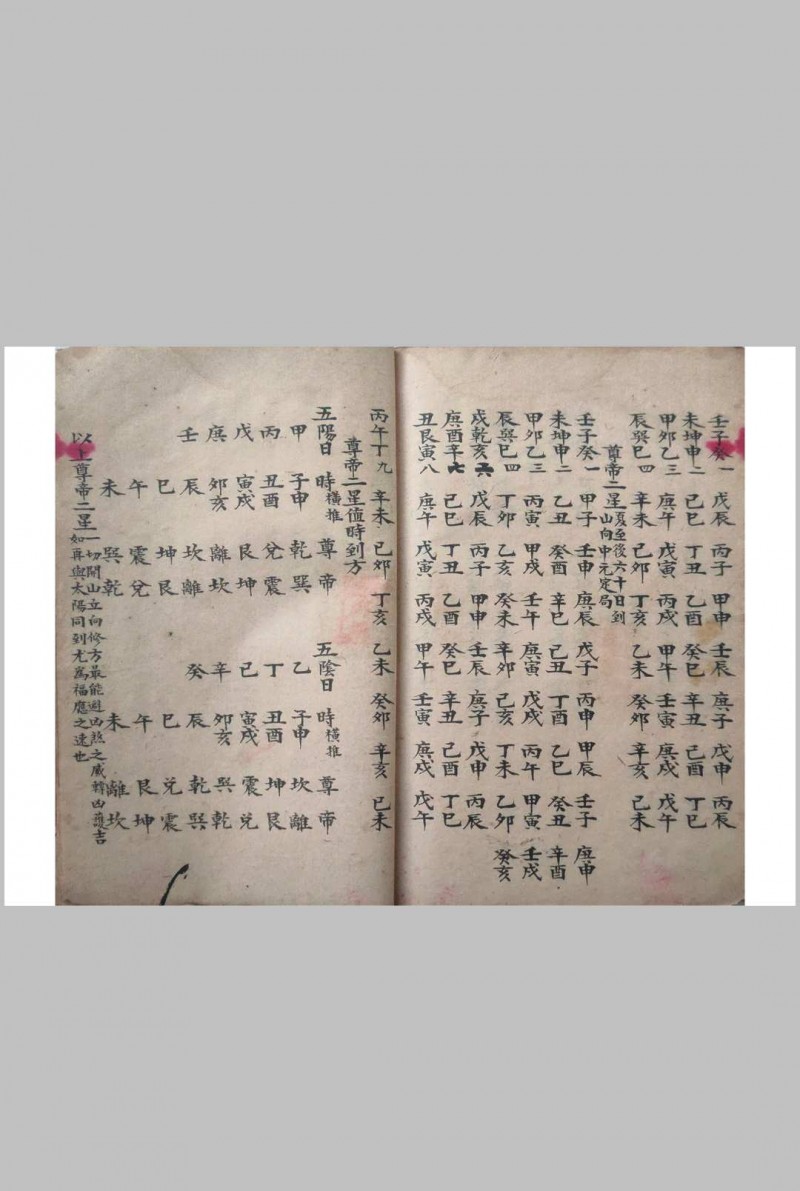 壬子癸一 戊辰 丙子 甲申 壬辰 庚子 戊申 丙辰
未坤申二 己巳 丁丑 乙酉 癸巳 辛丑 己酉 丁巳
甲卯乙三 庚午 戊寅 丙戌 甲午 壬寅 庚戌 戊午
辰巽巳四 辛未 己卯 丁亥 乙未 癸卯 辛亥 己未
尊帝二星 夏至後六十日到
山向中元定局
壬子癸一 甲子 壬申 庚辰 戊子 丙申 甲辰 壬子 庚申
未坤申二 乙丑 癸酉 辛巳 己丑 丁酉 乙巳 癸丑 辛酉
甲卯乙三 丙寅 甲戌 壬午 庚寅 戊戌 丙午 甲寅 壬戌
辰巽巳四 丁卯 乙亥 癸未 辛卯 己亥 丁未 乙卯 癸亥
戌乾亥六 戊辰 丙子 甲申 壬辰 庚子 戊申 丙辰
庚酉辛七 己巳 丁丑 乙酉 癸巳 辛丑 己酉 丁巳
丑艮寅八 庚午 戊寅 丙戌 甲午 壬寅 庚戌 戊午
丙午丁九 辛未 己卯 丁亥 乙未 癸卯 辛亥 己未
尊帝二星值時到方
五陽日 時橫推 尊 帝 五陰日 時橫推 尊 帝
甲 子申 乾 巽 乙 子申 坎 離
丙 丑酉 兌 震 丁 丑酉 坤 艮
戊 寅戌 艮 坤 己 寅戌 震 兌
庚 卯亥 離 坎 辛 卯亥 巽 乾
壬 辰 坎 離 癸 辰 乾 巽
巳 坤 艮 巳 兌 震
午 震 兌 午 艮 坤
未 巽 乾 未 離 坎
以上尊帝二星 一切開山立向修方最能避凶煞之威轉凶護吉
如再與太陽同到尤爲福應之速也